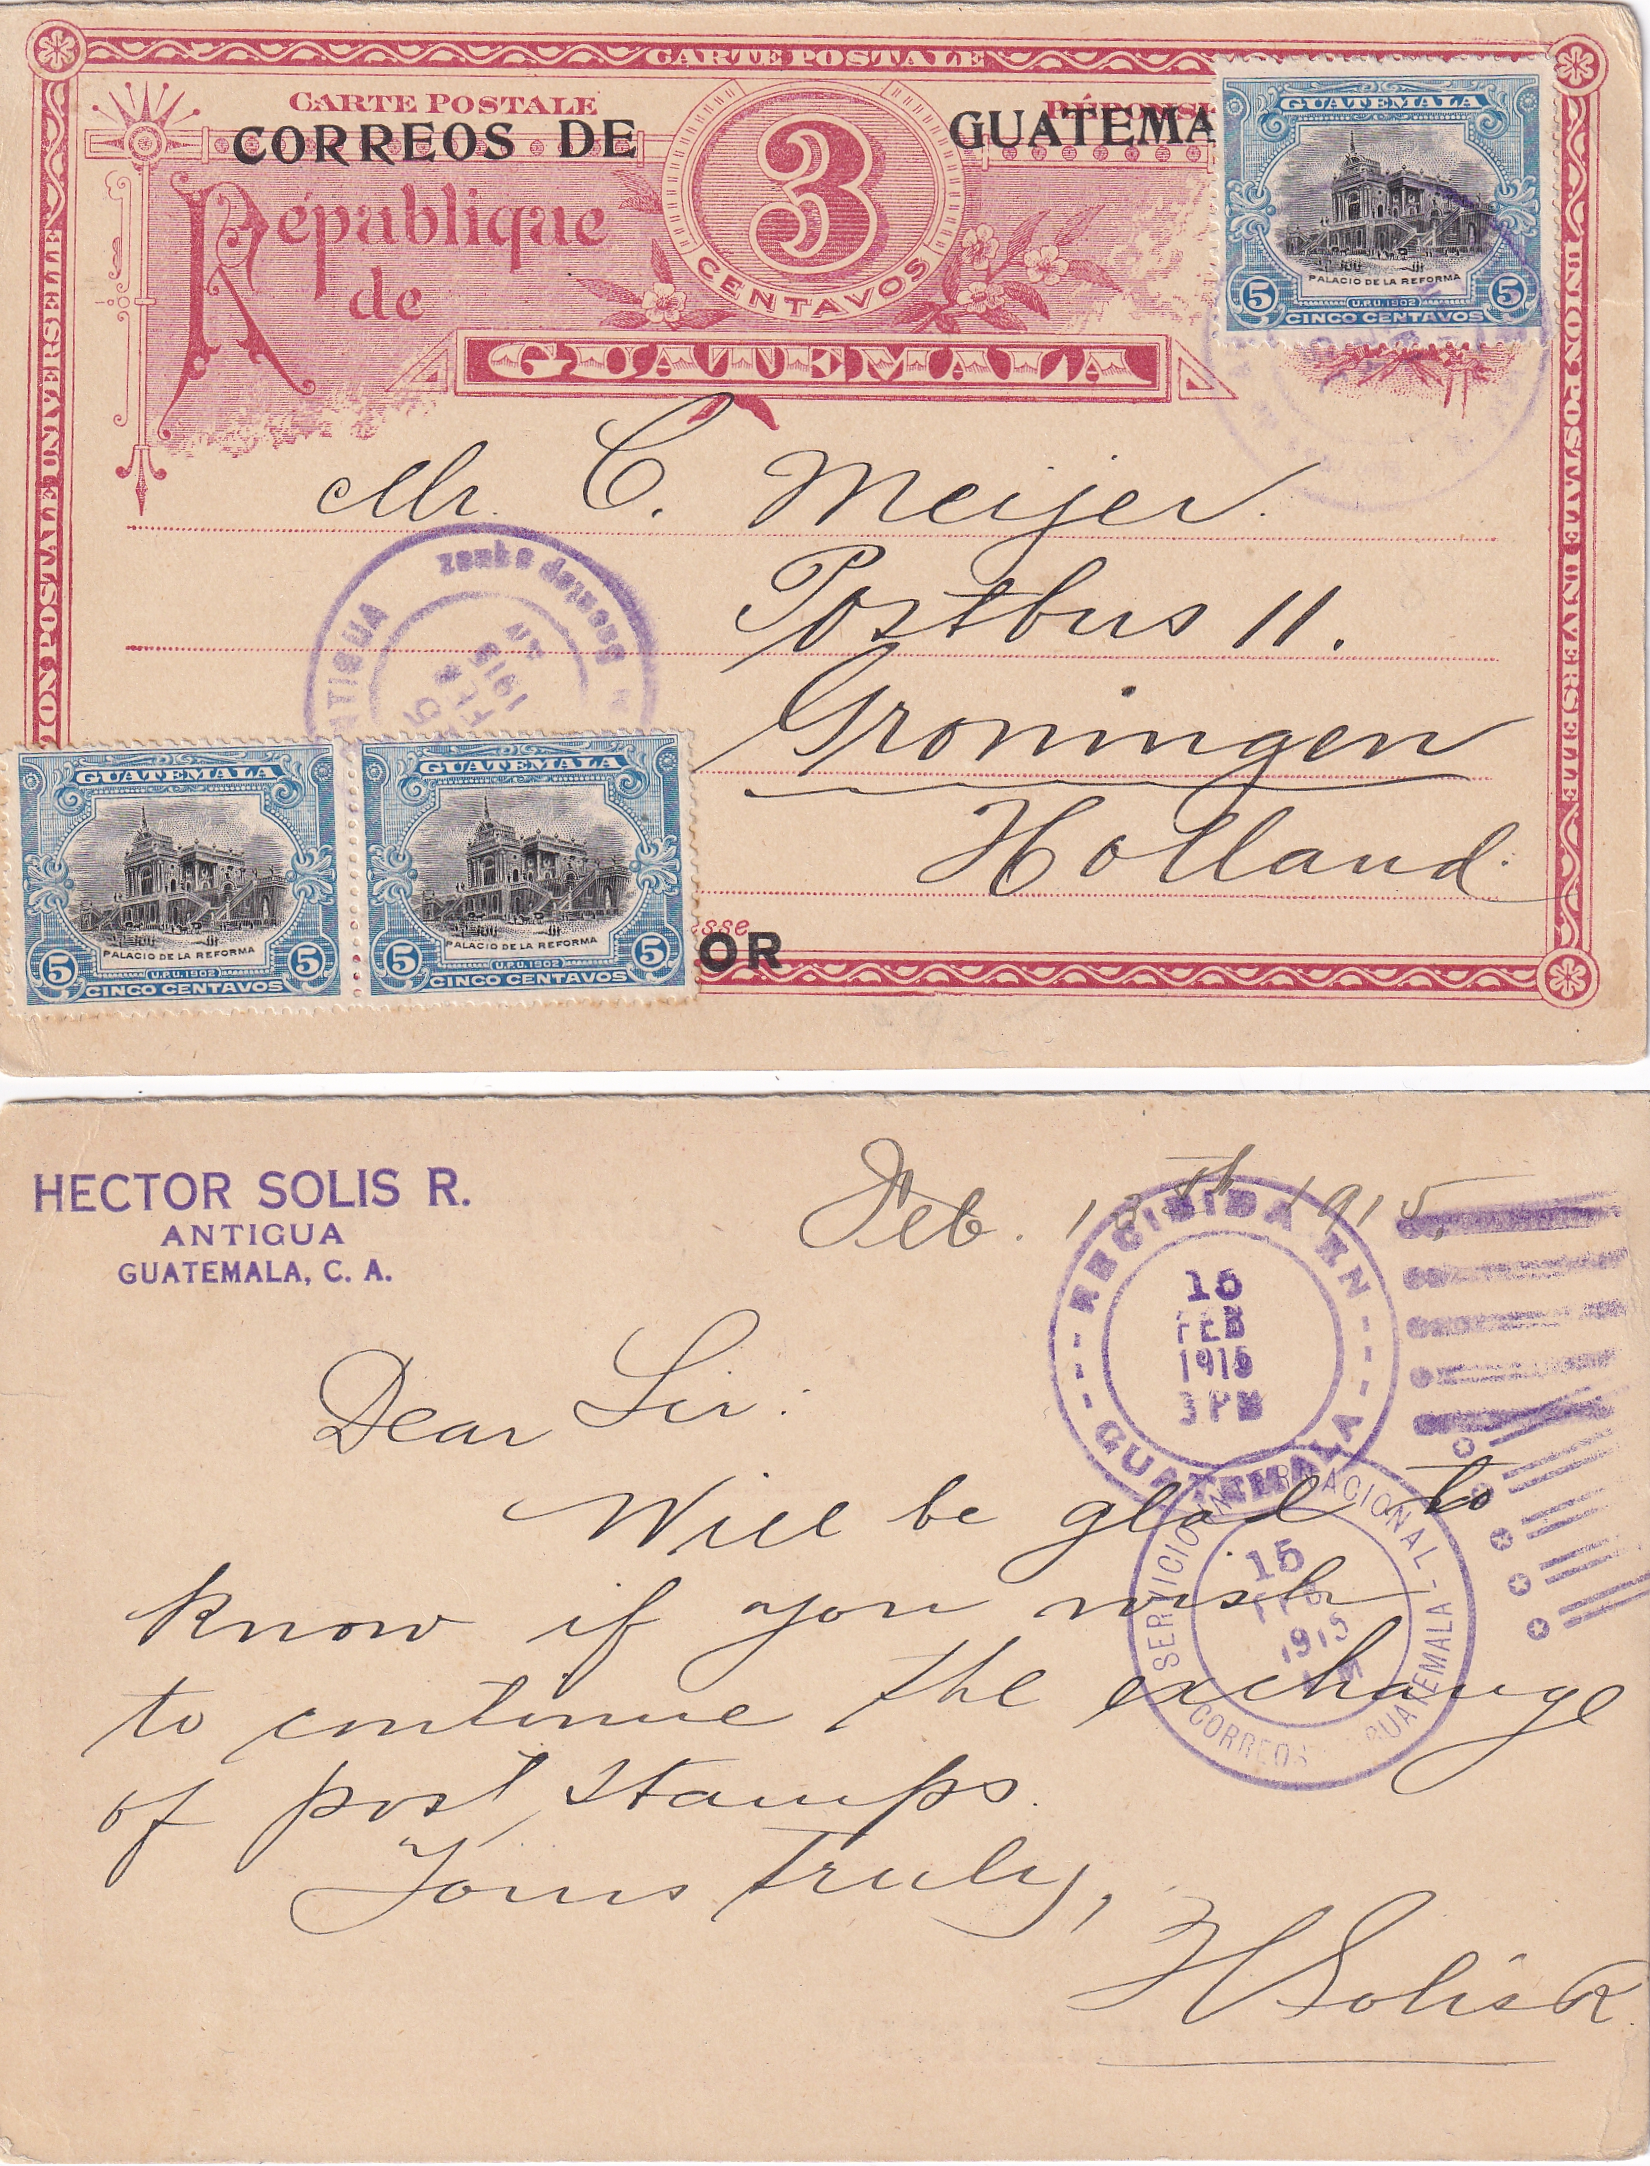 CARTE POSTALE
CARTE POSTALE
CORREOS DE GUATEMA
République
de
3
CENTAVOS
GUATEMALA
GUATEMALA
PALACIO DE LA REFORMA
5 U.P.U. 1902 5
CINCO CENTAVOS
UNION POSTALE UNIVERSELLE
UNION POSTALE UNIVERSELLE
Mr. C. Meijer.
Postbus 11.
Groningen
Holland.
ANTIGUA
FEB
1915
GUATEMALA
PALACIO DE LA REFORMA
5 U.P.U. 1902 5
CINCO CENTAVOS
GUATEMALA
PALACIO DE LA REFORMA
5 U.P.U. 1902 5
CINCO CENTAVOS
esse
OR
HECTOR SOLIS R.
ANTIGUA
GUATEMALA, C. A.
Feb. 1915,
RECIBIDA EN
15
FEB
1915
3 PM
GUATEMALA
SERVICIO INTERNACIONAL
15
FEB
1915
CORREOS GUATEMALA
Dear Sir:
Will be glad to
know if you wish
to continue the exchange
of post stamps.
Yours truly,
H Solis R.